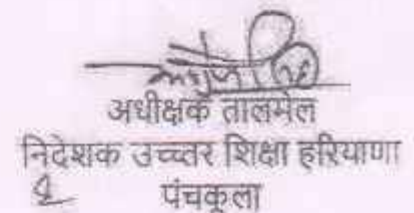 अधीक्षक तालमेल
निदेशक उच्चतर शिक्षा हरियाणा
पंचकूला